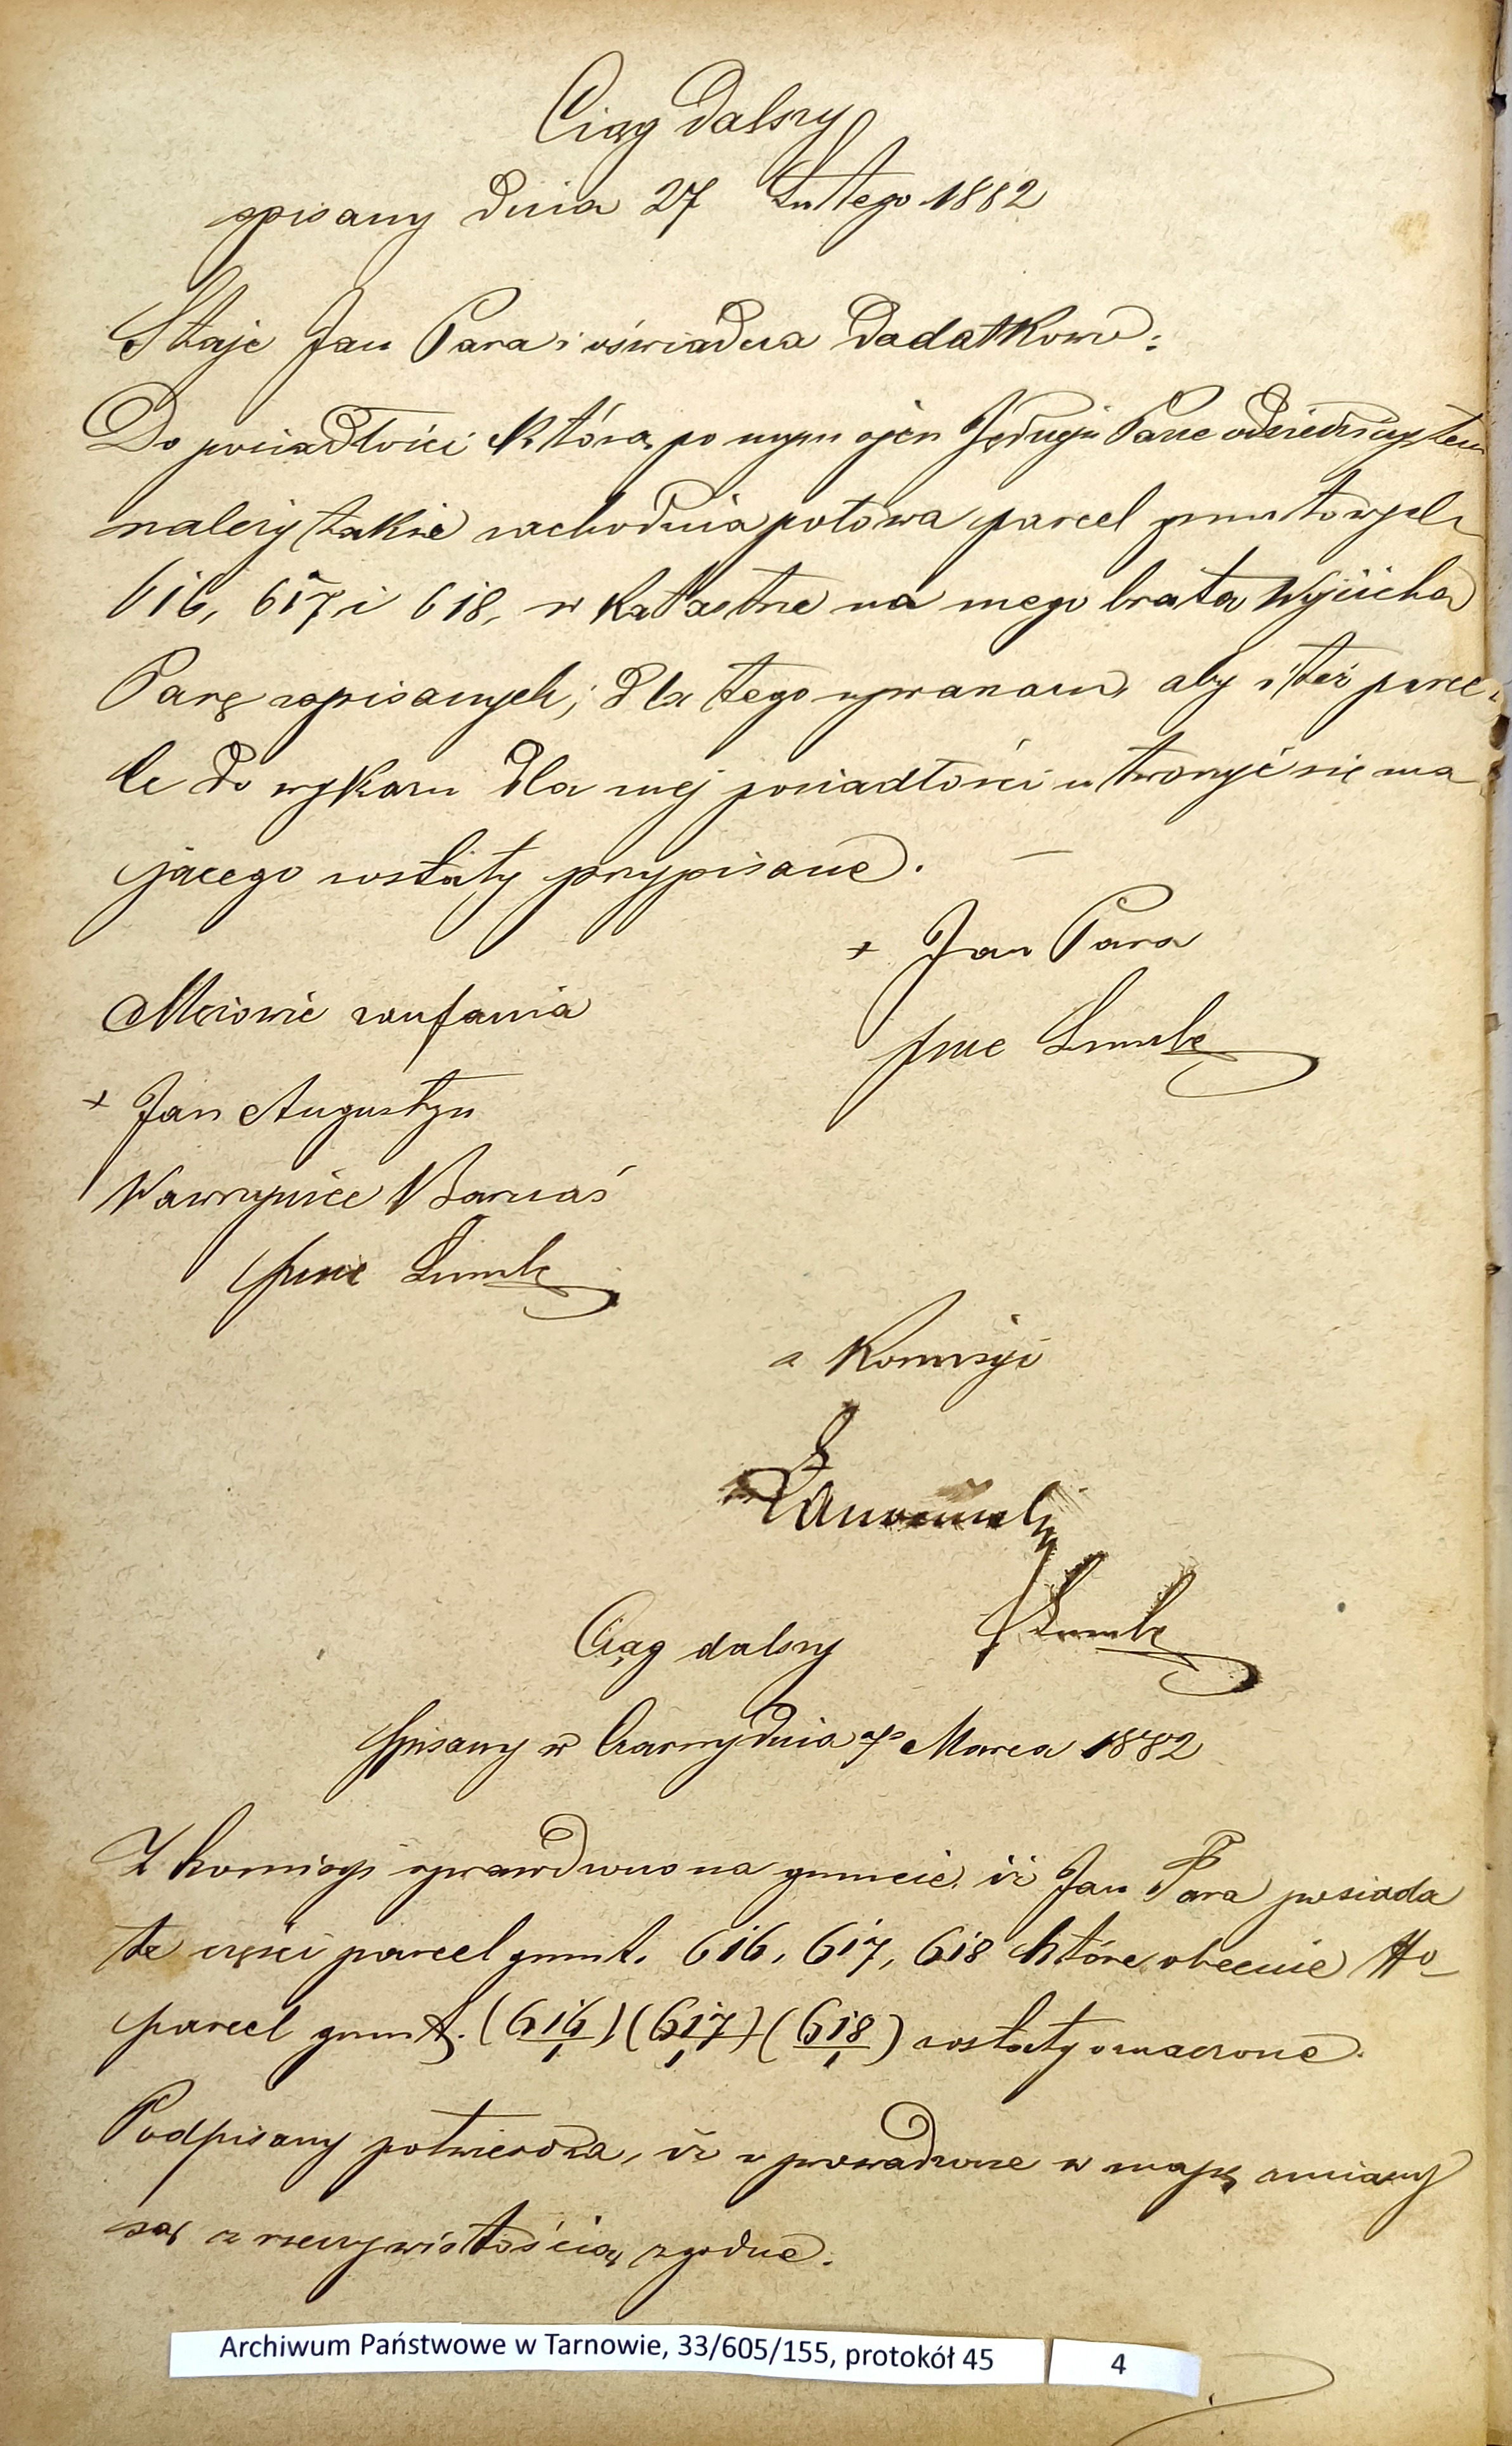 Ciąg dalszy
spisany dnia 27 Lutego 1882
Staje Jan Para i oświadcza dodatkowo:
Do posiadłości którą po mym ojcu Jędrzeju Parze odziedziczyłem
należy także zachodnia połowa parcel gruntowych
616, 617 i 618, w katastrze na mego brata Wojciecha
Parę zapisanych; dla tego upraszam, aby i też parce-
le do wykazu dla mej posiadłości utworzyć się ma
jącego zostały przypisane. —
+ Jan Para
Mężowie zaufania
+ Jan Augustyn
Wawrzyniec Barnaś
z Komisyi
Ciąg dalszy
Spisany w Czarny dnia 7º Marca 1882
Z komisyi sprawdzono na gruncie iż Jan Para posiada
te części parcel grunt. 616, 617, 618 które obecnie
parcel grunt. (616/1) (617/1) (618/1) zostały oznaczone.
Podpisany potwierdza, iż uprowadzone w mapę zmiany
są z rzeczywistością zgodne.
Archiwum Państwowe w Tarnowie, 33/605/155, protokół 45
4